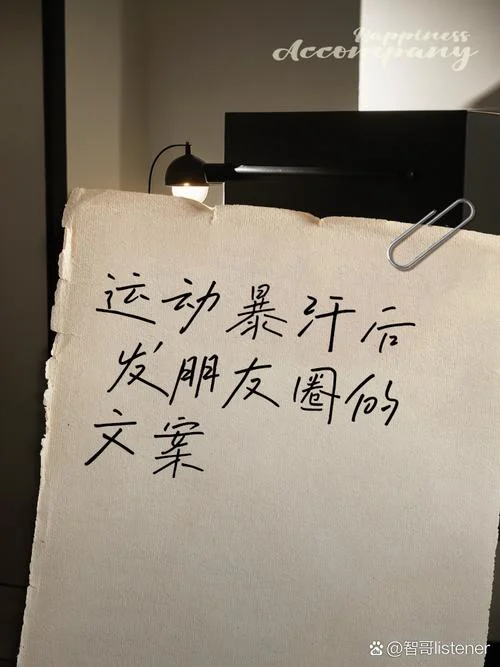 Happiness
Accompany
运动暴汗后
发朋友圈的
文案
@智哥listener